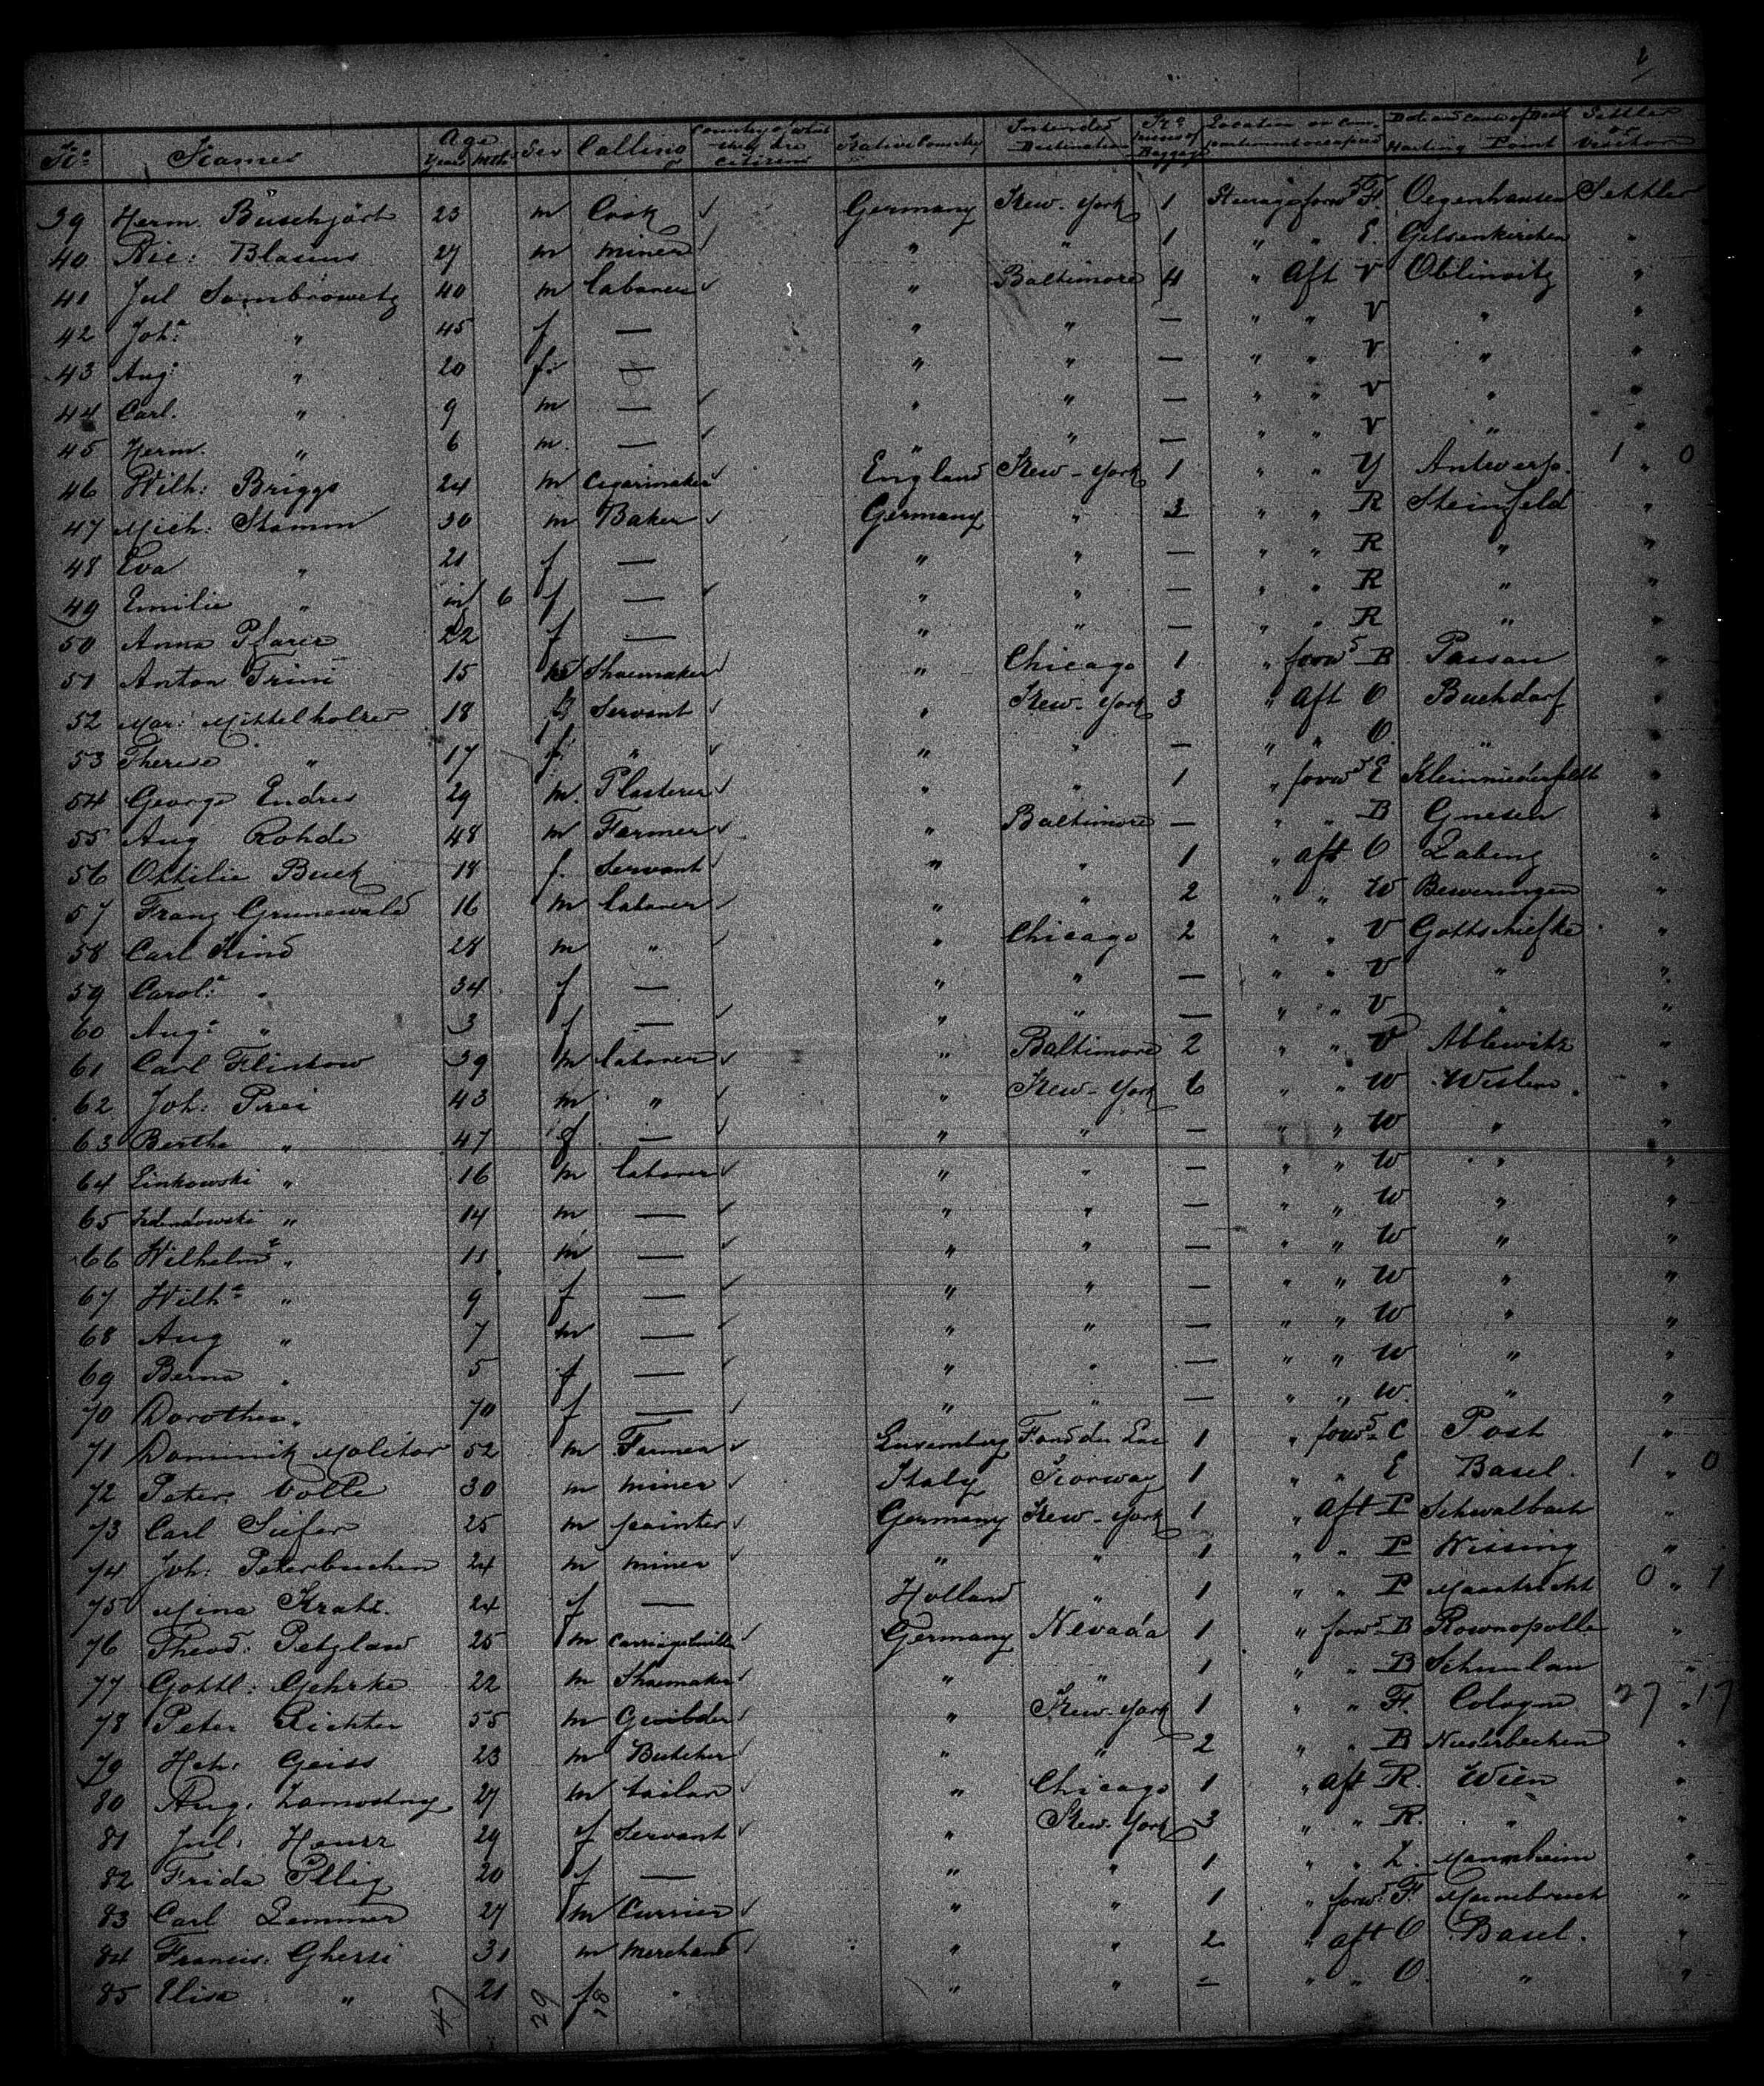 No. Names Age Years Mths Sex Calling Country of which they are citizens Native Country Intended Destination No. pieces of Baggage Location or compartment occupied Date and Cause of Death Settler or Visitor
Starting Point
39 Herm. Buschjört 23 m Cook Germany New-York 1 Steerage forwd F. Oegenhausen Settler
40 Ric: Blasius 27 m miner " " 1 " " E. Gelsenkirchen "
41 Jul Sombrowetz 40 m laborer " Baltimore 4 " aft V Oblinsitz "
42 Joha " 45 f — " " — " " V " "
43 Aug: " 20 f. — " " — " " V " "
44 Carl. " 9 m — " " — " " V " "
45 Herm. " 6 m. — " " — " " V " "
46 Wilh: Briggs 24 m cigarmaker England New-York 1 " " Y Antwerp. 1 " 0
47 Mich: Stamm 30 m Baker Germany " 3 " " R Steinfeld "
48 Eva " 21 f — " " — " " R " "
49 Emilie " inf 6 f — " " — " " R " "
50 Anna Pfarer 22 f — " " — " " R " "
51 Anton Trini 15 Shoemaker " Chicago 1 " forwd B Passau "
52 Mar: Mittelholzer 18 f Servant " New-York 3 " aft O Buchdorf "
53 Therese " 17 f. " " " — " " O. " "
54 George Endres 29 m. Plasterer " " 1 " forwd E Kleinniederfeldt "
55 Aug Rohde 48 m Farmer " Baltimore — " " B Gnesen "
56 Ottilie Buck 18 f. Servant " " 1 " aft O Labeng "
57 Franz Grunewald 16 m laborer " " 2 " " W Beweringen "
58 Carl Kind 28 m " " Chicago 2 " " V Gottschiefke "
59 Carol:a " 34 f — " " — " " V " "
60 Auga " 3 f — " " — " " V " "
61 Carl Flinkow 39 m laborer " Baltimore 2 " " V Ablewitz "
62 Joh: Prei 43 m " " New-York 6 " " W "
63 Bertha " 47 f — " " — " " W " "
64 Linkowski " 16 m laborer " " — " " W " "
65 " 14 m — " " — " " W " "
66 Wilhelm " 11 m — " " — " " W " "
67 Wilha " 9 f — " " — " " W " "
68 Aug " 7 m — " " — " " W " "
69 Berna " 5 f — " " — " " W " "
70 Dorothea " 70 f — " " — " " W. " "
71 Dominik Molitor 52 m Farmer Luxemburg Fond du Lac 1 " forwd C Post "
72 Peter Volle 30 m miner Italy Norway 1 " " E Basel. 1 " 0
73 Carl Siefer 25 m painter Germany New-York 1 " aft P Schwalbach "
74 Joh: Peterbuchen 24 m miner " " 1 " " P Wissing "
75 Mina Kratz. 24 f — Holland " 1 " " P Maastricht 0 " 1
76 Theod: Petzlaw 25 m Germany Nevada 1 " forwd B Rownopolle "
77 Gottl: Gehrke 22 m Shoemaker " " 1 " " B Schunlau "
78 Peter Richter 55 m " New-York 1 " " F. Cologne 27 " 17
79 Hch: Geiss 23 m Butcher " " 2 " " B Niederbechen "
80 Aug. Zamostny 27 m tailor " Chicago 1 " aft R. Wien "
81 Jul: Hauer 29 f Servant " New-York 3 " " R. " "
82 Frida Pllig 20 f — " " 1 " " Z. Mannheim "
83 Carl Lemmer 27 m Currier " " 1 " forwd F. "
84 Francis. Ghersi 31 m merchant " " 2 " aft O Basel. "
85 Elisa " 21 f " " " — " " O. " "
47 29 18